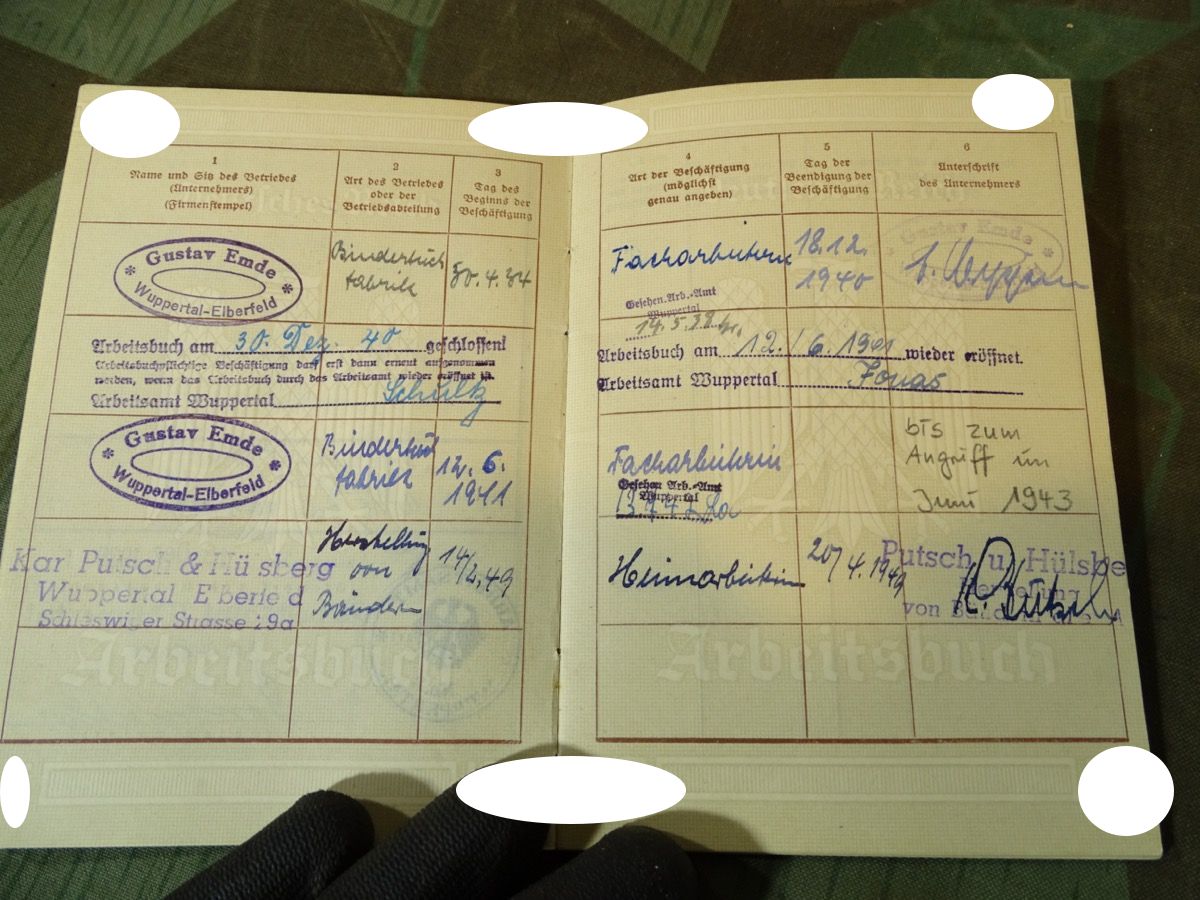 1
Name und Sitz des Betriebes
(Unternehmers)
(Firmenstempel)
2
Art des Betriebes
oder der
Betriebsabteilung
3
Tag des
Beginns der
Beschäftigung
Gustav Emde
Wuppertal-Elberfeld
fabrik
30.4.34
Arbeitsbuch am 30. Dez. 40 geschlossen!
Arbeitsbuchpflichtige Beschäftigung darf erst dann erneut aufgenommen
werden, wenn das Arbeitsbuch durch das Arbeitsamt wieder eröffnet ist.
Arbeitsamt Wuppertal Schultz
Gustav Emde
Wuppertal-Elberfeld
fabrik
12.6.
1941
Putsch & Hülsberg
Wuppertal Elberfeld
Schleswiger Strasse 29a
Herstellung
von
Bändern
14/2.49
Arbeitsbuch
4
Art der Beschäftigung
(möglichst
genau angeben)
5
Tag der
Beendigung der
Beschäftigung
6
Unterschrift
des Unternehmers
Facharbeiterin
18.12.
1940
Gustav Emde
Gesehen Arb.-Amt
Wuppertal
Arbeitsbuch am 12./6.1941 wieder eröffnet.
Arbeitsamt Wuppertal Jonas
Facharbeiterin
Gesehen Arb.-Amt
Wuppertal
bis zum
Angriff im
Juni 1943
Heimarbeiterin
20/4.1949
Putsch u. Hülsbe
Herstellung
von Bändern
Arbeitsbuch